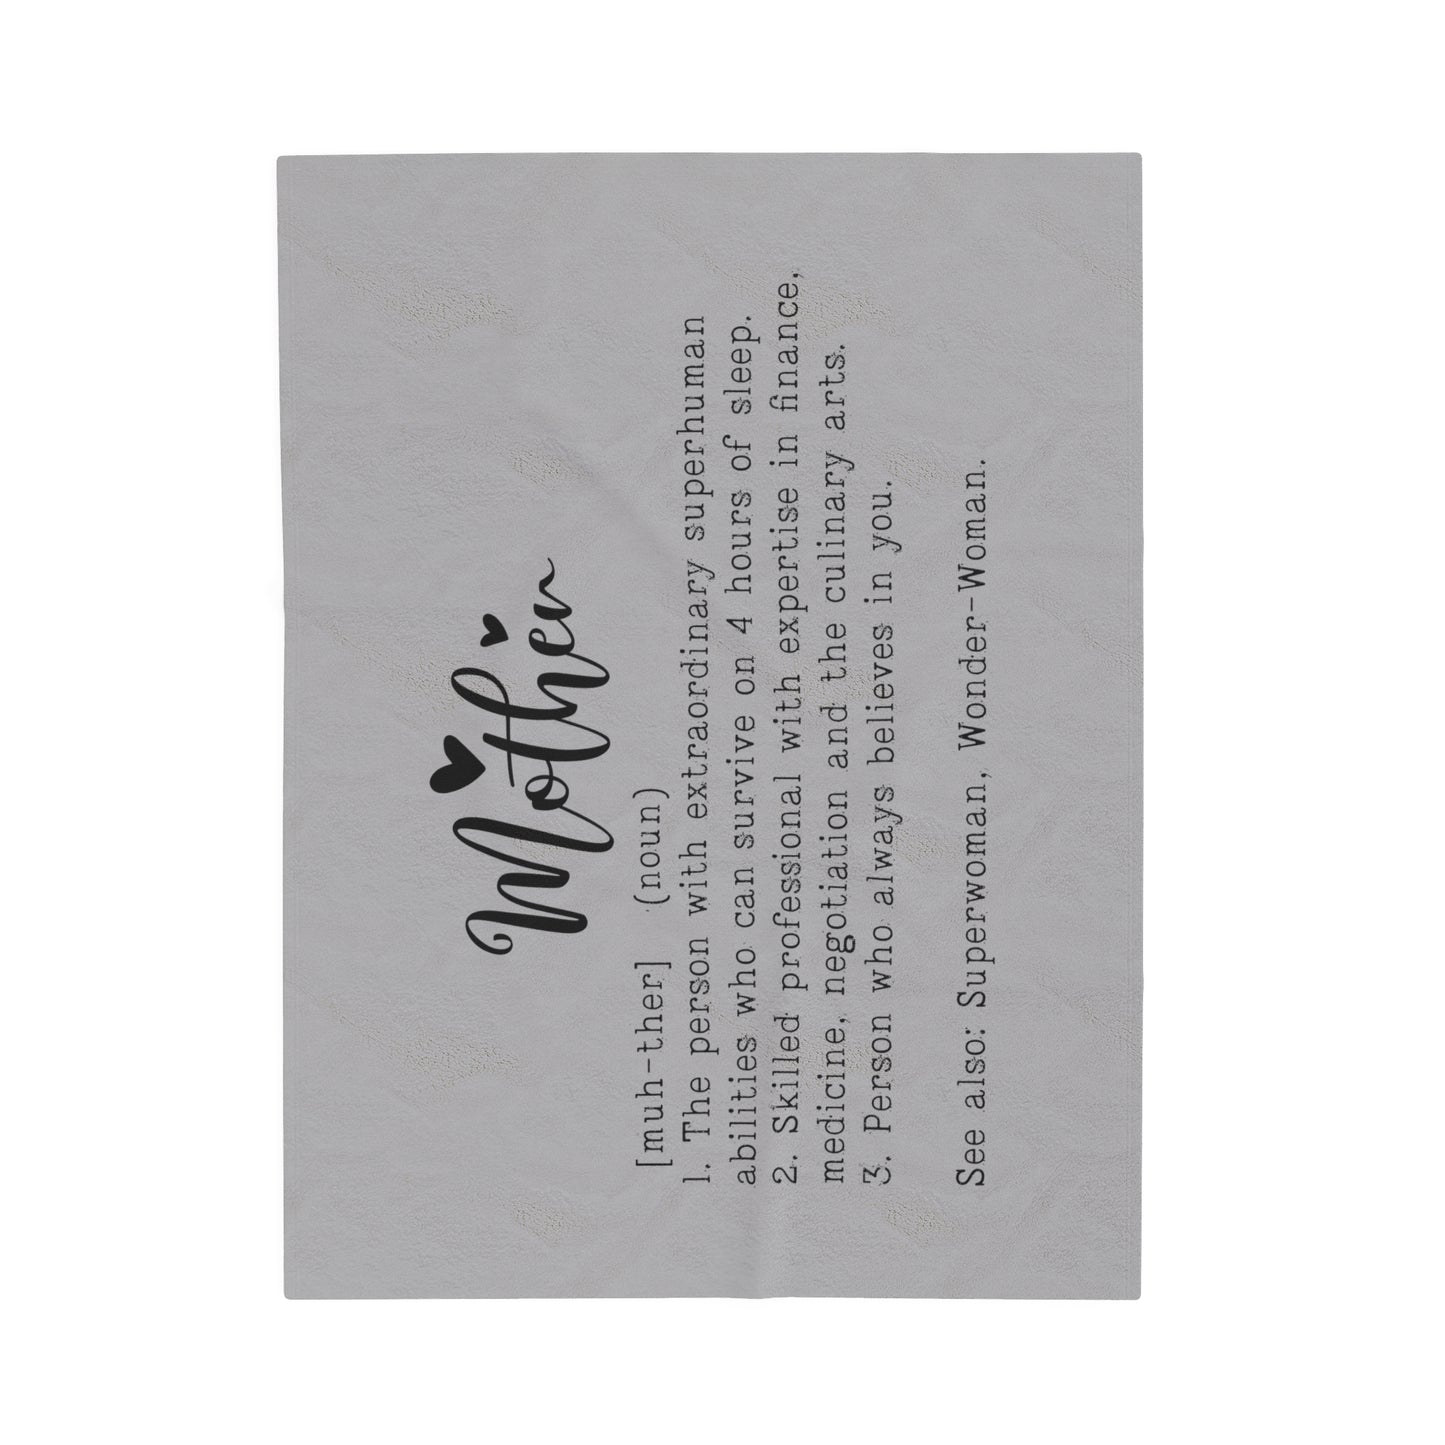 Mother
[muh-ther] (noun)
1. The person with extraordinary superhuman
abilities who can survive on 4 hours of sleep.
2. Skilled professional with expertise in finance,
medicine, negotiation and the culinary arts.
3. Person who always believes in you.
See also: Superwoman, Wonder-Woman.